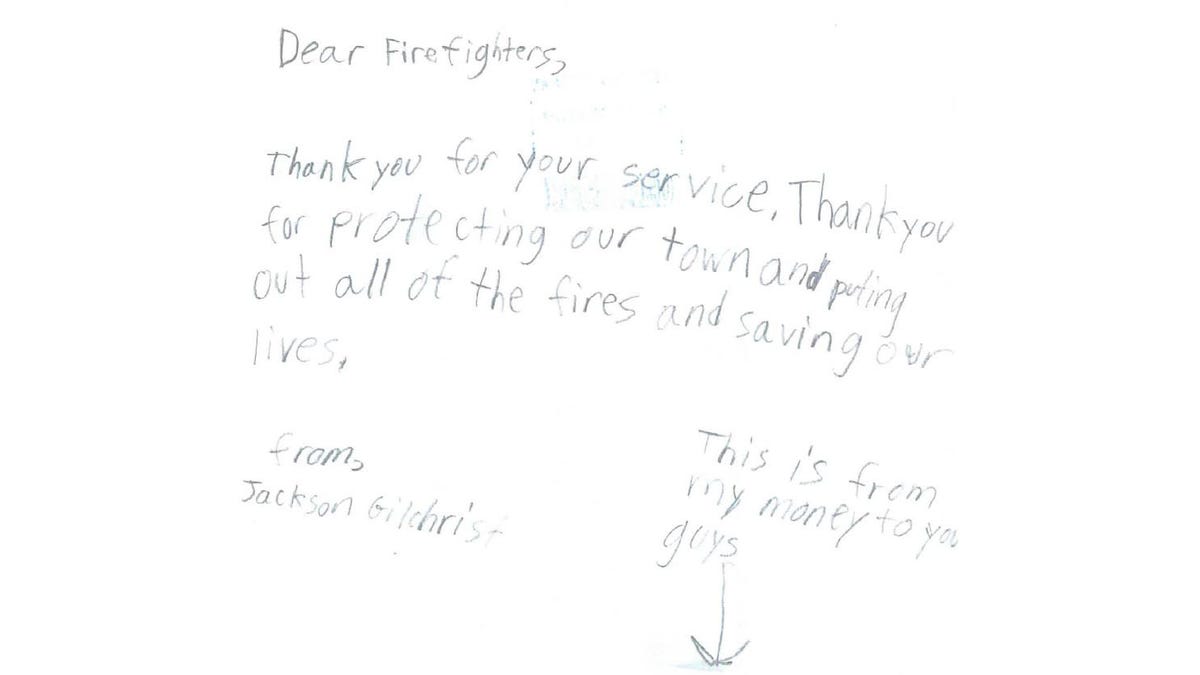 Dear Firefighters,
Thank you for your service. Thank you
for protecting our town and puting
out all of the fires and saving our
lives,
from,
Jackson Gilchrist
This is from
my money to you
guys